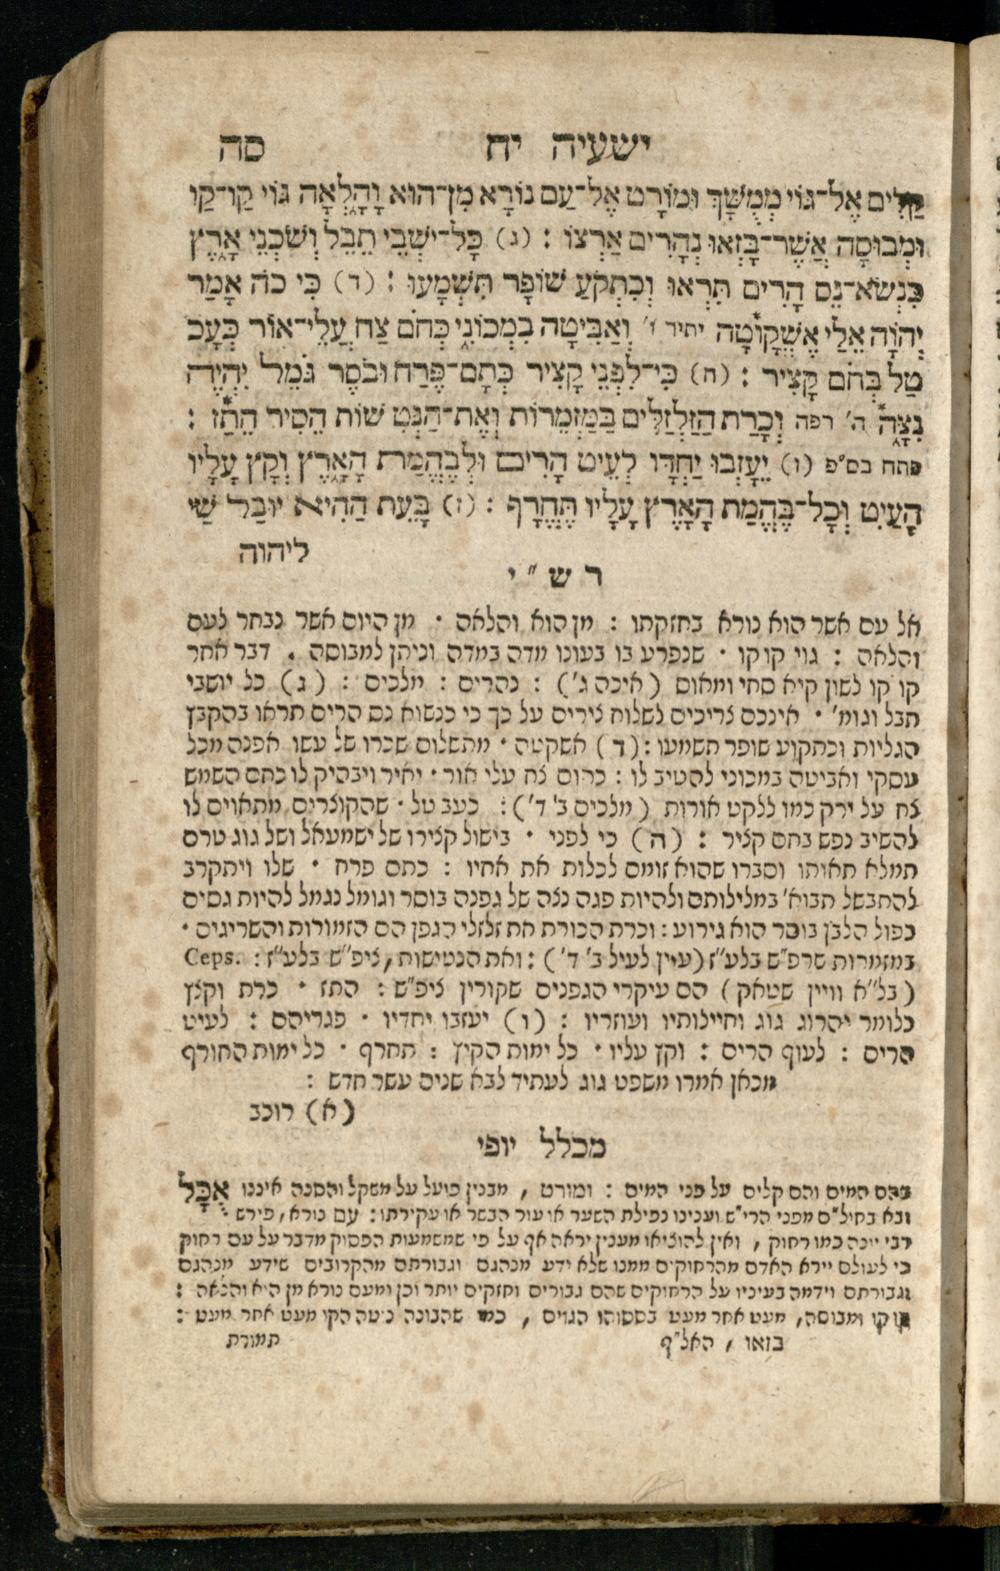 ישעיה יח סה
קַלִּים אֶל־גּוֹי מְמֻשָּׁךְ וּמוֹרָט אֶל־עַם נוֹרָא מִן־הוּא וָהָלְאָה גּוֹי קַו־קַו
וּמְבוּסָה אֲשֶׁר־בָּזְאוּ נְהָרִים אַרְצוֹ : (ג) כָּל־יֹשְׁבֵי תֵבֵל וְשֹׁכְנֵי אָרֶץ
כִּנְשֹׂא־נֵס הָרִים תִּרְאוּ וְכִתְקֹעַ שׁוֹפָר תִּשְׁמָעוּ : (ד) כִּי כֹה אָמַר
יְהֹוָה אֵלַי אֶשְׁקוֹטָה יתיר ו' וְאַבִּיטָה בִמְכוֹנִי כְּחֹם צַח עֲלֵי־אוֹר כְּעָב
טַל בְּחֹם קָצִיר : (ה) כִּי־לִפְנֵי קָצִיר כְּתָם־פֶּרַח וּבֹסֶר גֹּמֵל יִהְיֶה
נִצָּה ה' רפה וְכָרַת הַזַּלְזַלִּים בַּמַּזְמֵרוֹת וְאֶת־הַנְּטִישׁוֹת הֵסִיר הֵתַז :
פתח בס"פ (ו) יֵעָזְבוּ יַחְדָּו לְעֵיט הָרִים וּלְבֶהֱמַת הָאָרֶץ וְקָץ עָלָיו
הָעַיִט וְכָל־בֶּהֱמַת הָאָרֶץ עָלָיו תֶּחֱרָף : (ז) בָּעֵת הַהִיא יוּבַל שַׁי
ליהוה
רש"י
אל עם אשר הוא נורא בחזקתו : מן הוא והלאה · מן היום אשר נבחר לעם
והלאה : גוי קו קו · שנפרע בו בעונו מדה במדה וניתן למבוסה . דבר אחר
קו קו לשון קיא סחי ומאוס (איכה ג') : נהרים : מלכים : (ג) כל יושבי
תבל וגומ' · אינכם צריכים לשלוח צירים על כך כי כנשוא נס הרים תראו בהקבץ
הגליות וכתקוע שופר תשמעו : (ד) אשקטה · מתשלום שכרו של עשו אפנה מכל
עסקי ואביטה במכוני להטיב לו : כחום צח עלי אור · יאיר ויבהיק לו כחם השמש
צח על ירק כמו ללקט אורות (מלכים ב' ד') : כעב טל · שהקוצרים מתאוים לו
להשיב נפש בחם קציר : (ה) כי לפני · בישול קצירו של ישמעאל ושל גוג טרם
תמלא תאותו וסברו שהוא זומם לכלות את אחיו : כתם פרח · שלו ויתקרב
להתבשל תבוא' במלילותם ולהיות פגה נצה של גפנה בוסר וגומל נגמל להיות גסים
כפול הלבן בוסר הוא גירוע : וכרת הכורת את זלזלי הגפן הם הזמורות והשריגים ·
במזמרות סרפ"ש בלע"ז (עיין לעיל ב' ד') : ואת הנטישות , ציפ"ש בלע"ז : Ceps.
(בל"א וויין שטאק) הם עיקרי הגפנים שקורין ציפ"ש : התז · כרת וקצץ
כלומר יהרוג גוג וחיילותיו ועוזריו : (ו) יעזבו יחדיו · פגריהם : לעיט
הרים : לעוף הרים : וקץ עליו · כל ימות הקיץ : תחרף · כל ימות החורף
מכאן אמרו משפט גוג לעתיד לבא שנים עשר חדש :
(א) רוכב
מכלל יופי
בהם המים והם קלים על פני המים : ומורט , מבנין פועל על משקל והסנה איננו אֻכָּל
ובא בחול"ם מפני הרי"ש וענינו נפילת השער או עור הבשר או עקירתו : עם נורא , פירש
רבי יונה כמו רחוק , ואין להוציאו מענין יראה אף על פי שמשמעות הפסוק מדבר על עם רחוק
כי לעולם יירא האדם מהרחוקים ממנו שלא ידע מנהגם וגבורתם מהקרובים שידע מנהגם
וגבורתם וידמה בעיניו על הרחוקים שהם גבורים וחזקים יותר וכן ומעם נורא מן הוא והלאה :
קו קו ומבוסה , מעט אחר מעט בססוהו הגוים , כמו שהבונה נוטה הקו מעט אחר מעט :
בזאו , האל"ף תמורת